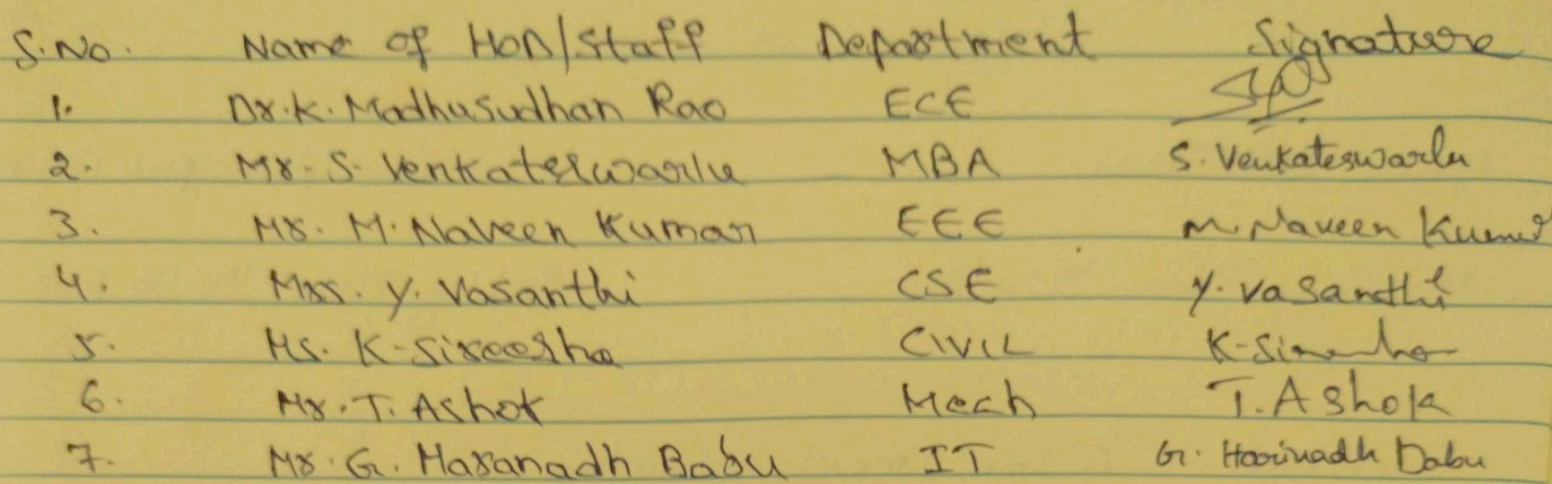 S.No. Name of HOD/Staff Department Signature
1. Dr.K. Madhusudhan Rao ECE
2. Mr. S. Venkateswarlu MBA S. Venkateswarlu
3. Mr. M. Naveen Kumar EEE M. Naveen Kumar
4. Mrs. Y. Vasanthi CSE Y. Vasanthi
5. Ms. K. Sireesha CIVIL
6. Mr. T. Ashok Mech T. Ashok
7. Mr. G. Haranadh Babu IT G. Harinadh Babu